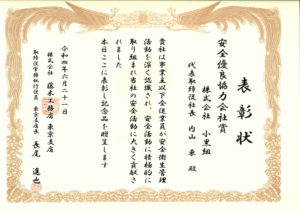 表彰状
安全優良協力会社賞
株式会社 小里組
代表取締役社長 内山 東 殿
貴社は事業主以下全従業員が安全衛生管理
活動を深く認識され、安全活動に積極的に
取り組まれ当社の安全活動に大きく貢献さ
れました
本日ここに表彰し記念品を贈呈します
令和四年六月二十一日
株式会社 藤木工務店 東京支店
取締役常務執行役員 東京支店長 長尾 進也